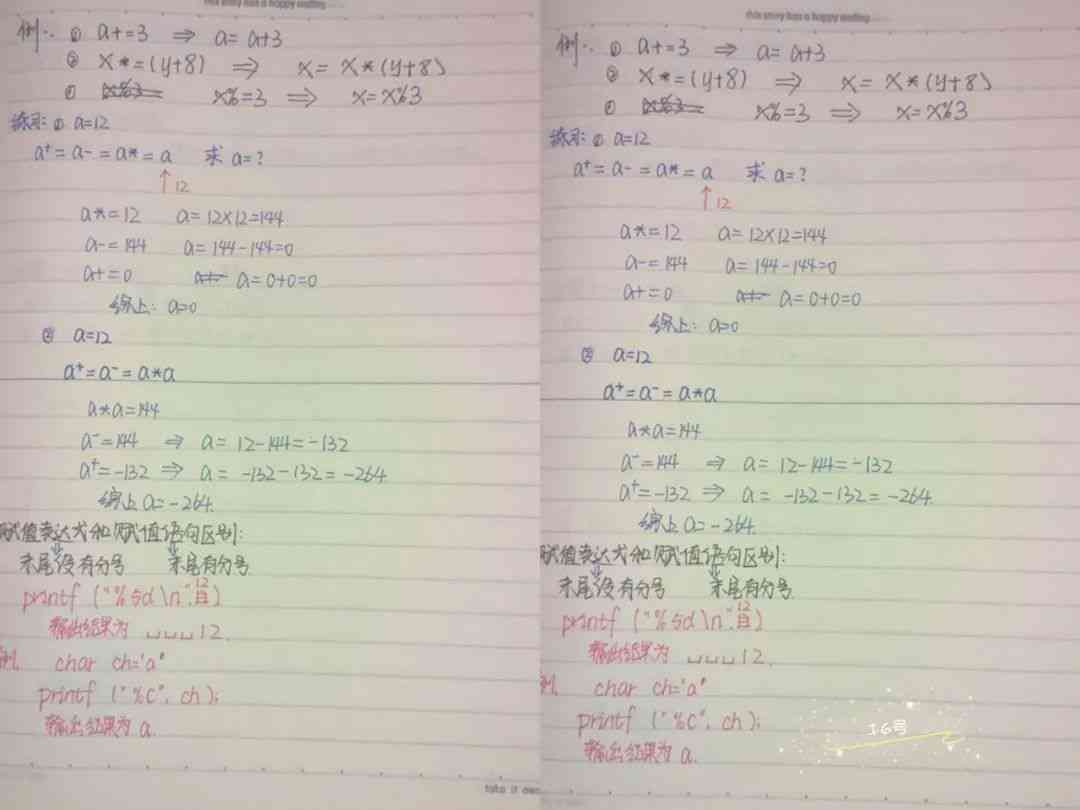 this story has a happy ending
例: ① a+=3 ⇒ a=a+3
② x*=(y+8) ⇒ x=x*(y+8)
① x%=3 ⇒ x=x%3
练习: ① a=12
a+=a-=a*=a 求a=?
↑12
a*=12 a=12×12=144
a-=144 a=144-144=0
a+=0 a=0+0=0
综上: a=0
② a=12
a+=a-=a*a
a*a=144
a-=144 ⇒ a=12-144=-132
a+=-132 ⇒ a=-132-132=-264
综上a=-264.
赋值表达式和赋值语句区别:
末尾没有分号 末尾有分号
printf ("%5d\n",12)
输出结果为 ␣␣␣12.
例. char ch='a'
printf ("%c", ch);
输出结果为a.
take it ow
this story has a happy ending
例: ① a+=3 ⇒ a=a+3
② x*=(y+8) ⇒ x=x*(y+8)
① x%=3 ⇒ x=x%3
练习: ① a=12
a+=a-=a*=a 求a=?
↑12
a*=12 a=12×12=144
a-=144 a=144-144=0
a+=0 a=0+0=0
综上: a=0
② a=12
a+=a-=a*a
a*a=144
a-=144 ⇒ a=12-144=-132
a+=-132 ⇒ a=-132-132=-264.
综上a=-264.
赋值表达式和赋值语句区别:
末尾没有分号 末尾有分号
printf ("%5d\n",12)
输出结果为 ␣␣␣12.
例. char ch='a'
printf ("%c", ch);
输出结果为a.
16号